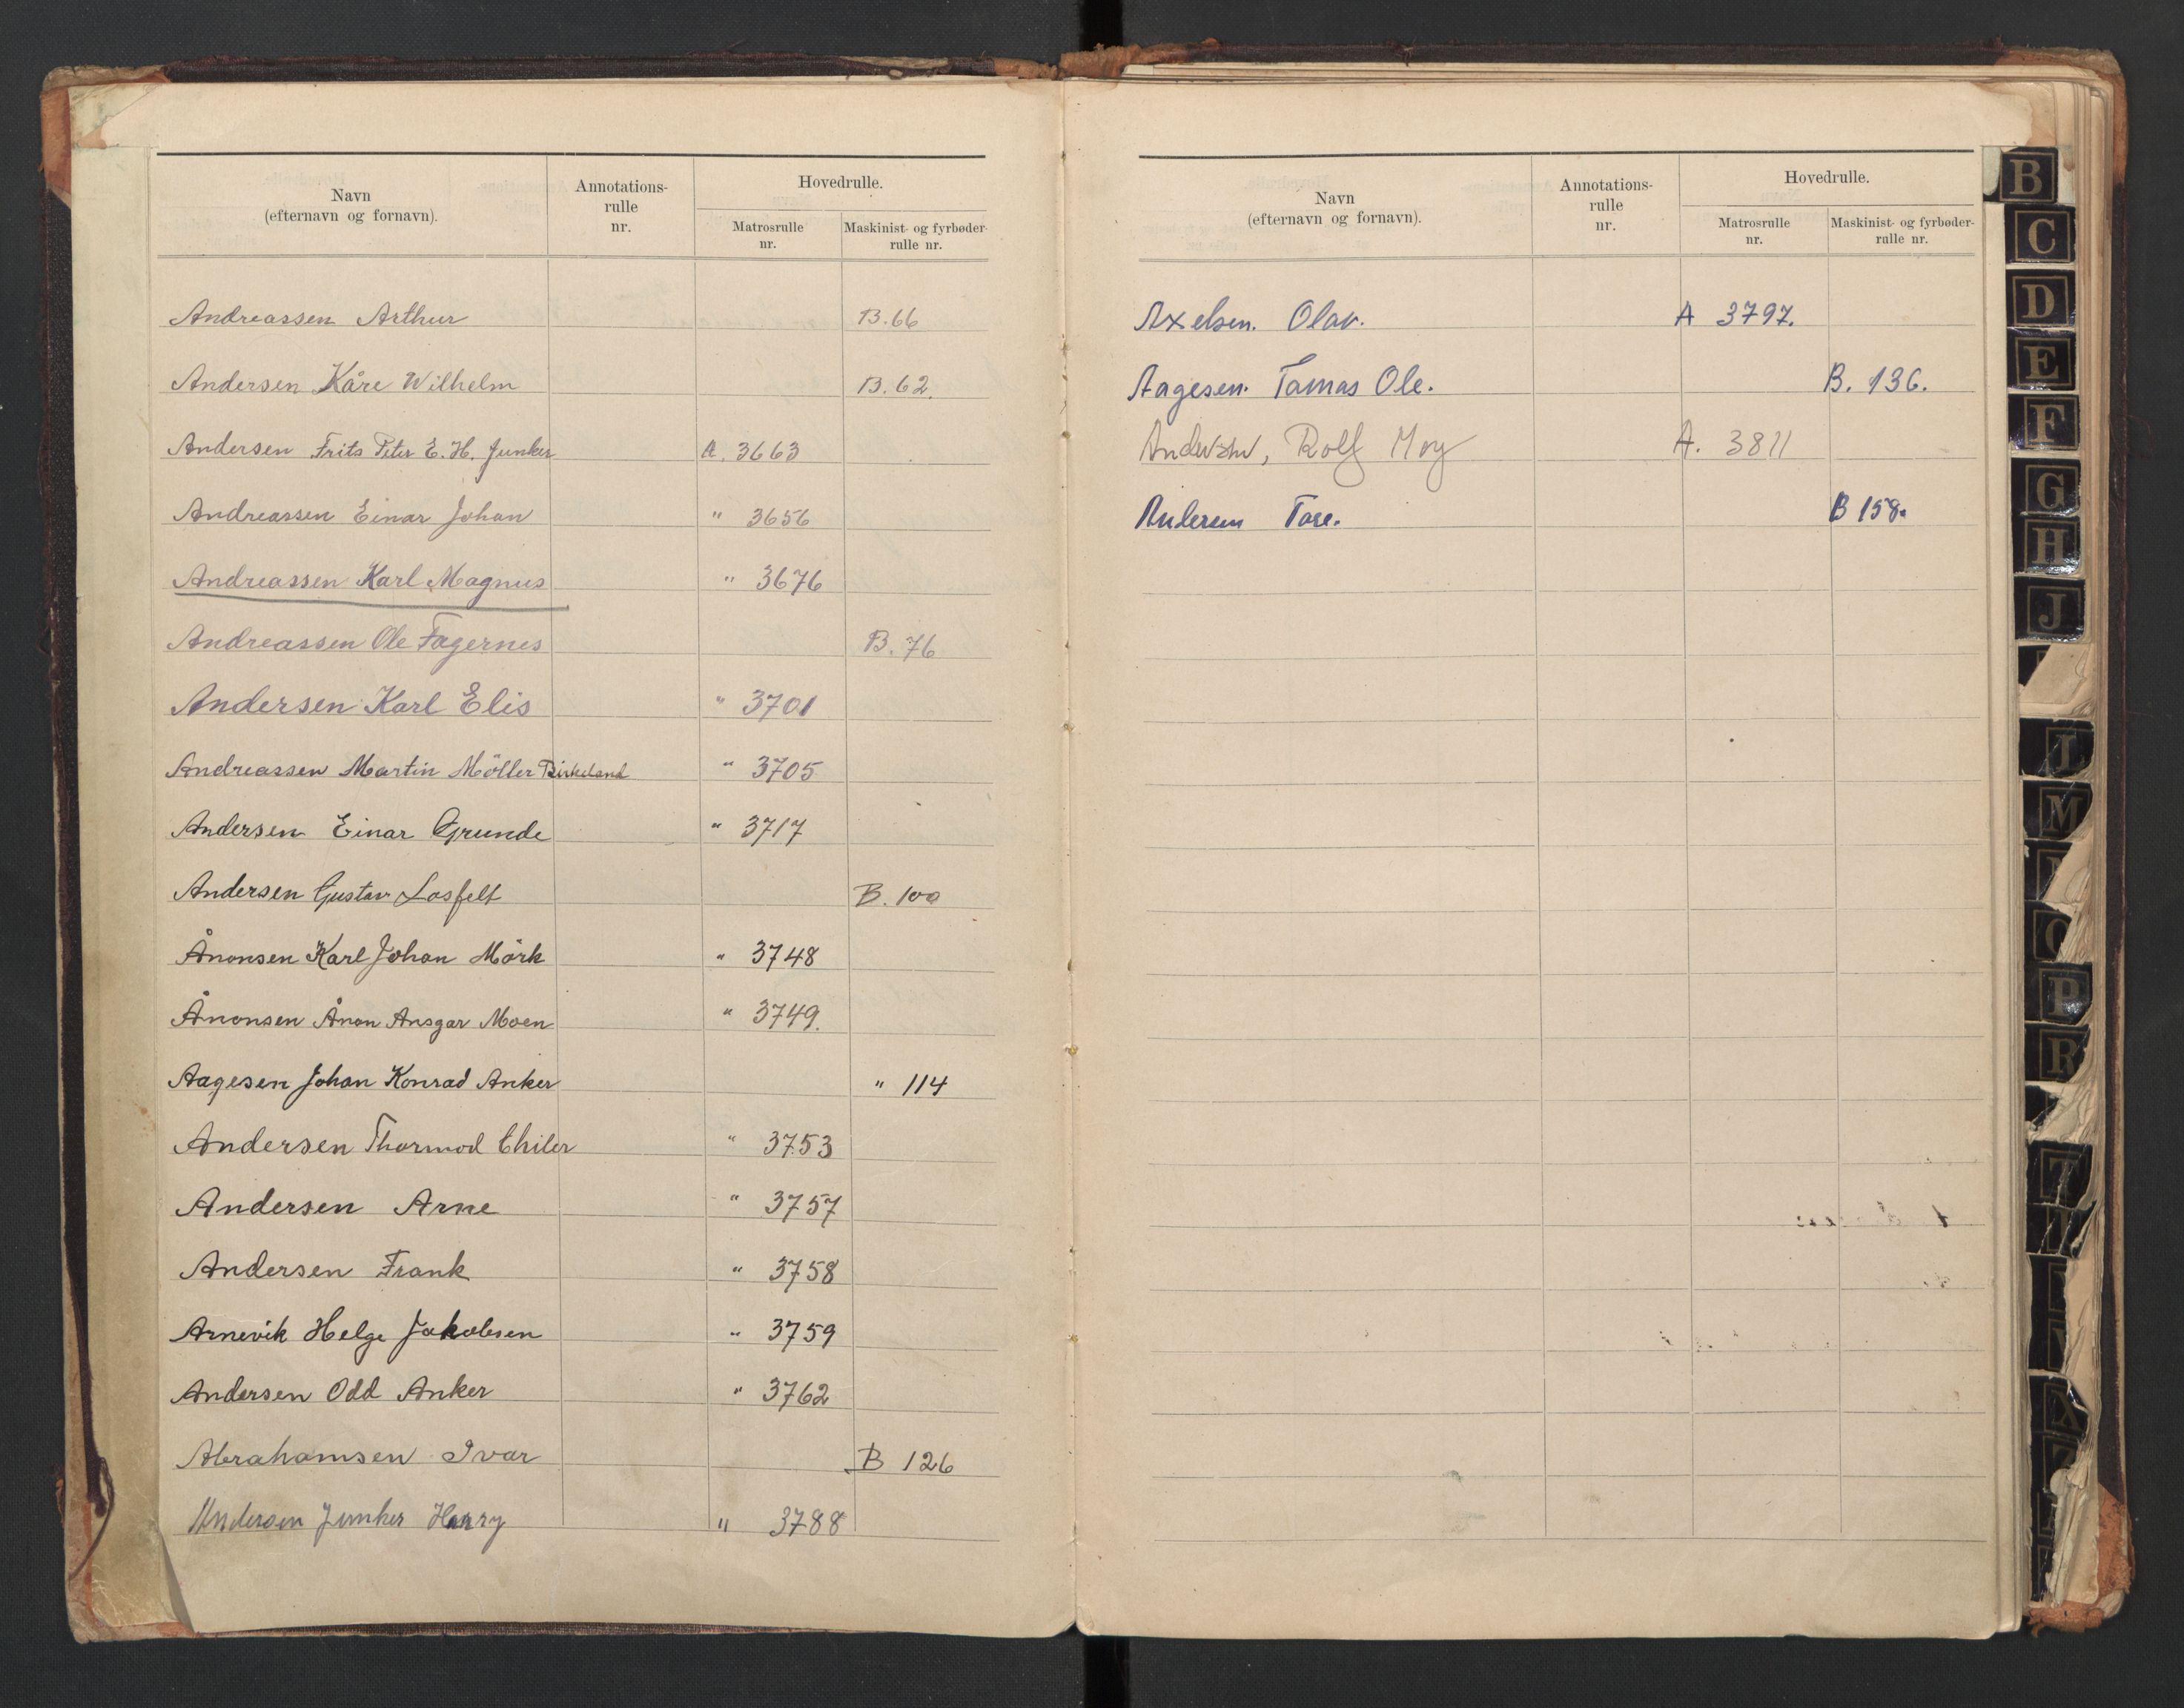 Navn
(efternavn og fornavn).
Annotations-
rulle
nr.
Hovedrulle.
Matrosrulle
nr.
Maskinist- og fyrbøder-
rulle nr.
Andreassen Arthur B. 66
Andersen Kåre Wilhelm B. 62.
Andersen Frits Peter E. H. Junker A. 3663
Andreassen Einar Johan " 3656
Andreassen Karl Magnus " 3676
Andreassen Ole Fagernes B. 76
Andersen Karl Elis " 3701
Andreassen Martin Möller Birkeland " 3705
Andersen Einar Grunde " 3717
Andersen Gustav Losfelt B. 100
Ånonsen Karl Johan Mörk " 3748
Ånonsen Ånon Ansgar Moen " 3749.
Aagesen Johan Konrad Anker " 114
Andersen Thormod Chiler " 3753
Andersen Arne " 3757
Andersen Frank " 3758
Arnevik Helge Jakobsen " 3759
Andersen Odd Anker " 3762
Abrahamsen Ivar B 126
Andersen Junker Harry " 3788
Navn
(efternavn og fornavn).
Annotations-
rulle
nr.
Hovedrulle.
Matrosrulle
nr.
Maskinist- og fyrbøder-
rulle nr.
Axelsen. Olav. A 3797.
Aagesen. Tamas Ole. B. 136.
Andersen, Rolf Moy A. 3811
Andersen Tore. B 158.
B
C
D
E
F
G
H
J
L
M
O
P
R
T